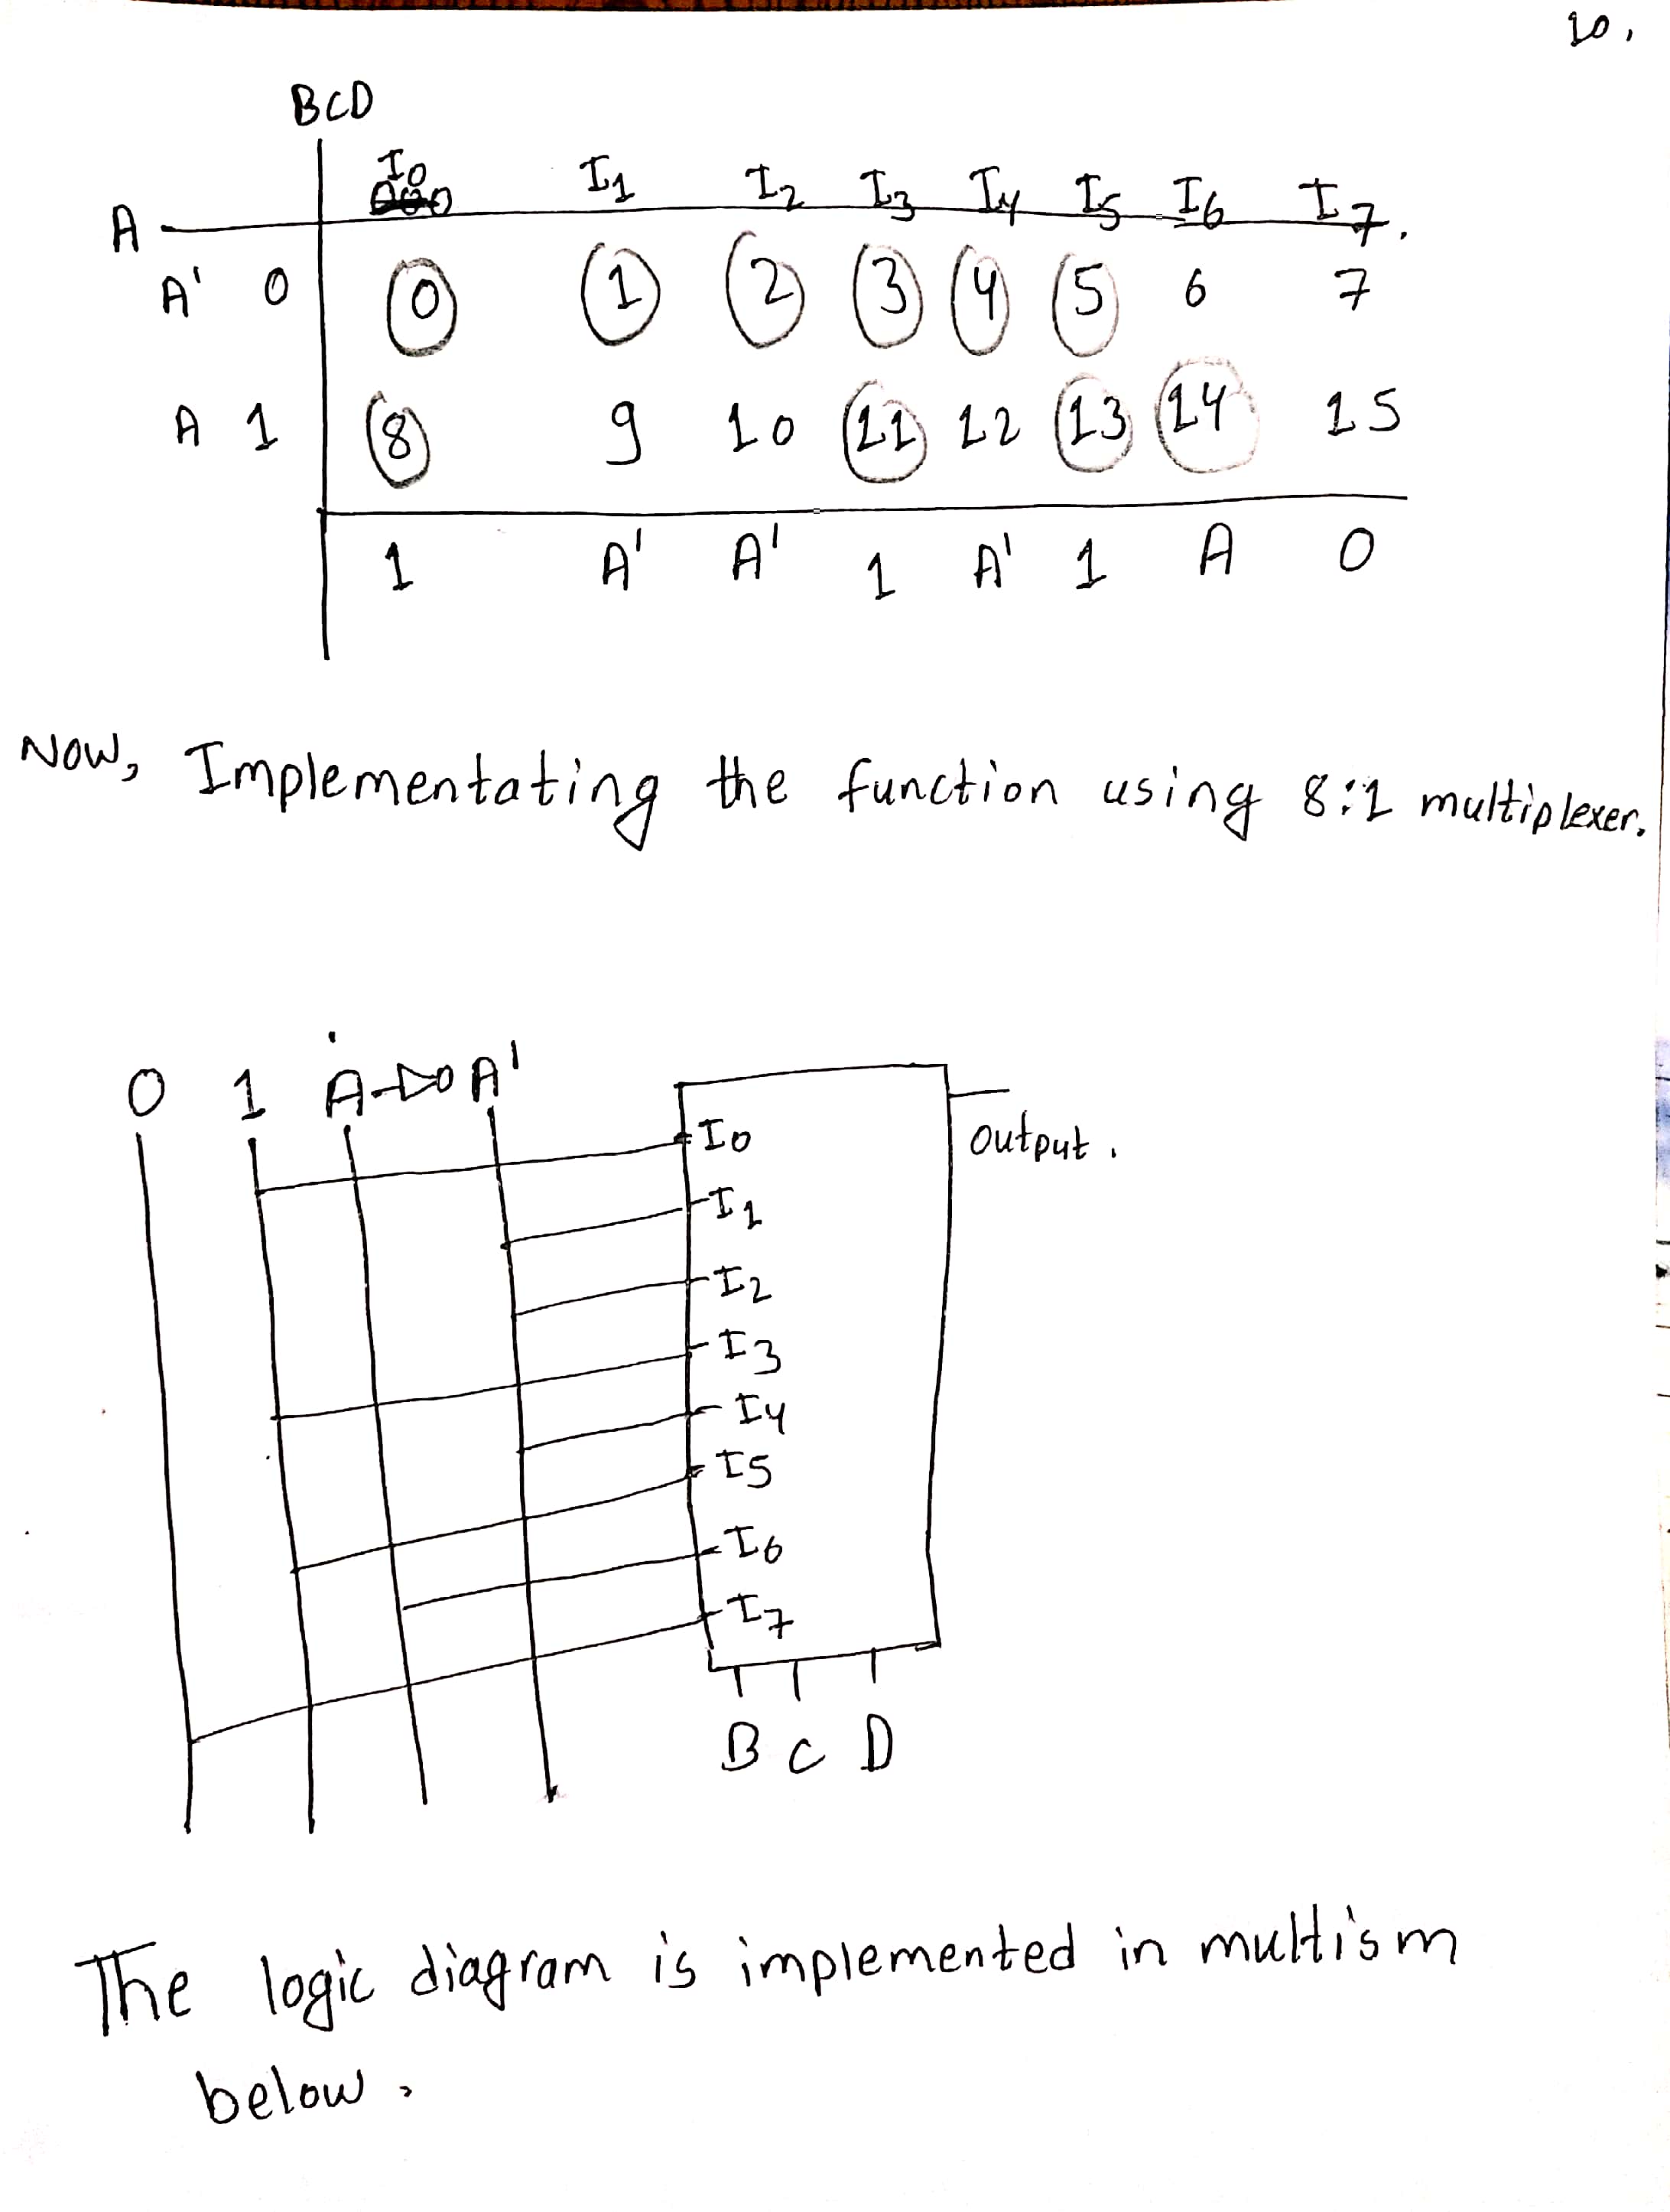 10.
BCD
I0 I1 I2 I3 I4 I5 I6 I7.
A
A' 0 0 1 2 3 4 5 6 7
A 1 8 9 10 11 12 13 14 15
1 A' A' 1 A' 1 A 0
Now, Implementating the function using 8:1 multiplexer.
0 1 A A'
I0
Output.
I1
I2
I3
I4
I5
I6
I7
B C D
The logic diagram is implemented in multism
below.